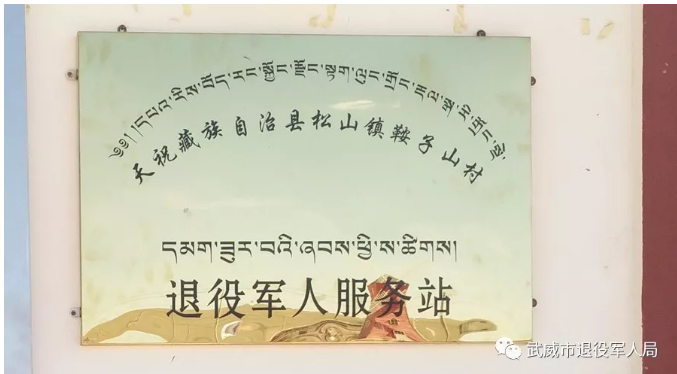 ༄༅། །དཔའ་རིས་བོད་རང་སྐྱོང་རྫོང་སྟག་ལུང་གྲོང་རྡལ་
天祝藏族自治县松山镇鞍子山村
དམག་ཟུར་བའི་ཞབས་ཕྱི་ས་ཚིགས།
退役军人服务站
武威市退役军人局